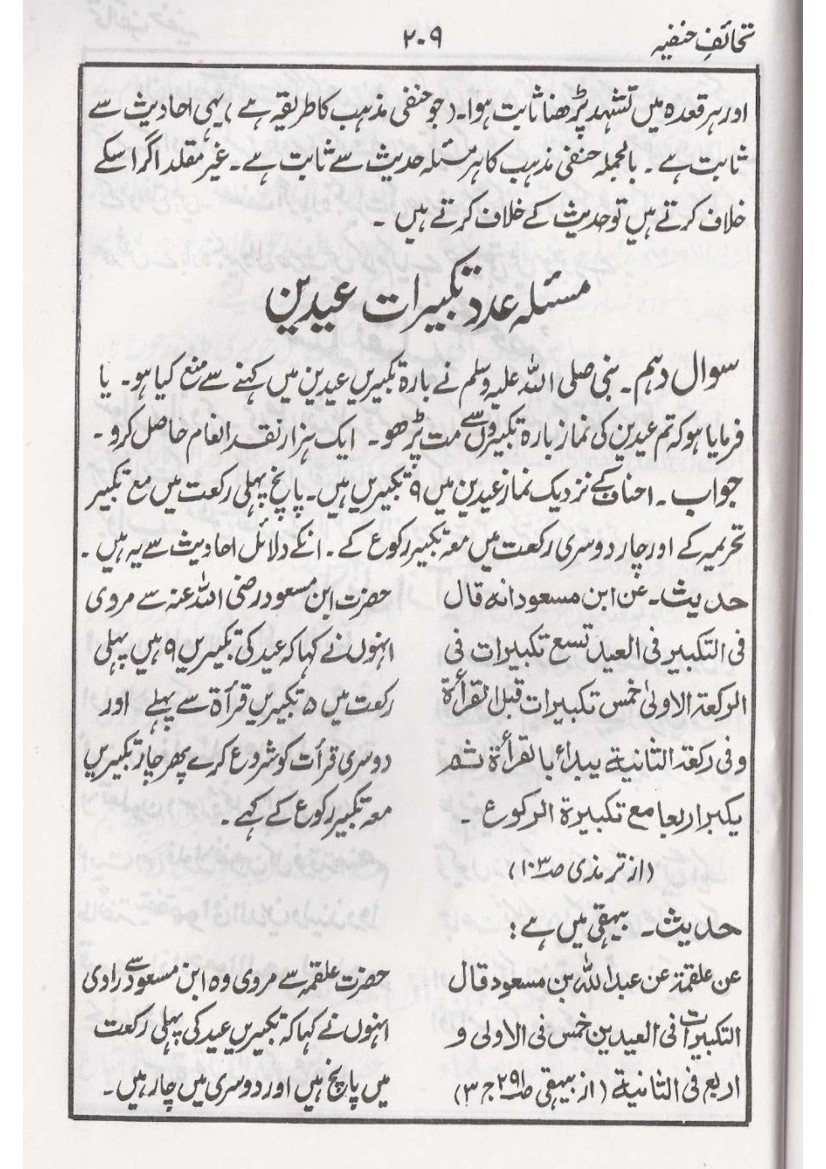 تحائف حنفیہ
۲۰۹
اور ہر قعدہ میں تشہد پڑھنا ثابت ہوا۔ (جو حنفی مذہب کا طریقہ ہے) یہی احادیث سے
ثابت ہے۔ بالجملہ حنفی مذہب کا ہر مسئلہ حدیث سے ثابت ہے۔ غیر مقلد اگر اسکے
خلاف کرتے ہیں تو حدیث کے خلاف کرتے ہیں ۔
مسئلہ عدد تکبیرات عیدین
سوال دہم۔ نبی صلی اللہ علیہ وسلم نے بارہ تکبیریں عیدین میں کہنے سے منع کیا ہو۔ یا
فرمایا ہو کہ تم عیدین کی نماز بارہ تکبیروں سے مت پڑھو۔ ایک ہزار نقد انعام حاصل کرو۔
جواب۔ احناف کے نزدیک نماز عیدین میں ۹ تکبیریں ہیں۔ پانچ پہلی رکعت میں مع تکبیر
تحریمہ کے اور چار دوسری رکعت میں معہ تکبیر رکوع کے۔ انکے دلائل احادیث سے یہ ہیں۔
حدیث۔ عن ابن مسعود انه قال
فی التکبیر فی العید تسع تکبیرات فی
الرکعة الاولیٰ خمس تکبیرات قبل القرأة
و فی رکعة الثانیة یبداٴ بالقرأة ثم
یکبر اربعا مع تکبیرة الرکوع ۔
(از ترمذی صـ۱۰۳)
حضرت ابن مسعود رضی اللہ عنہ سے مروی
انہوں نے کہا کہ عید کی تکبیریں ۹ ہیں پہلی
رکعت میں ۵ تکبیریں قرأة سے پہلے اور
دوسری قرأت کو شروع کرے پھر چار تکبیریں
معہ تکبیر رکوع کے کہے۔
حدیث۔ بیہقی میں ہے:
عن علقمة عن عبد اللہ بن مسعود قال
التکبیرات فی العیدین خمس فی الاولی و
اربع فی الثانیة (از بیہقی صـ۲۹۱ ج ۳)
حضرت علقمہ سے مروی وہ ابن مسعود سے راوی
انہوں نے کہا کہ تکبیریں عید کی پہلی رکعت
میں پانچ ہیں اور دوسری میں چار ہیں۔